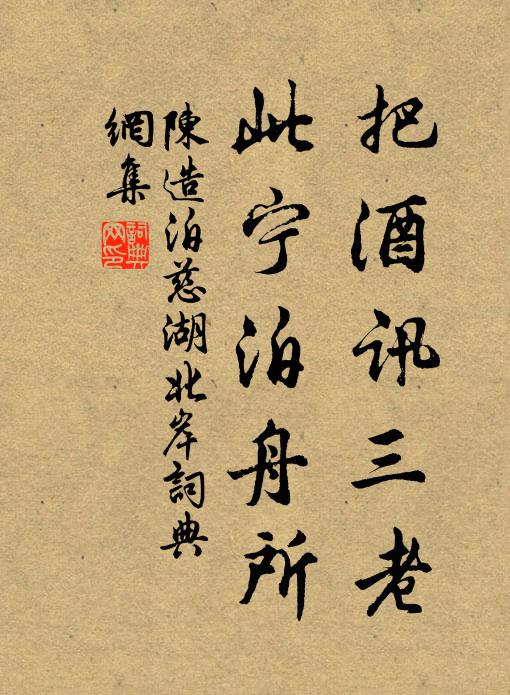 把酒讯三老
此宁泊舟所
陳造泊慈湖北岸詞典
網集
詞典
网印